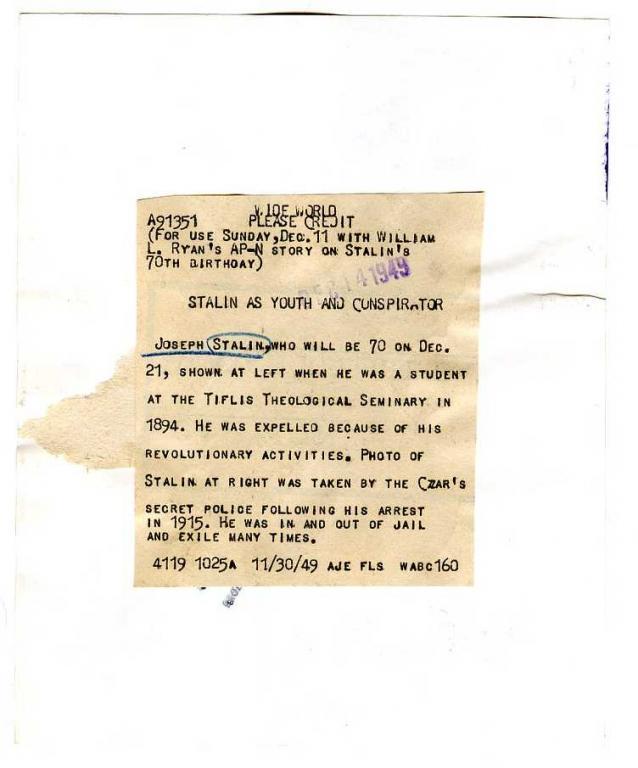 WIDE WORLD
A91351 PLEASE CREDIT
(FOR USE SUNDAY, DEC. 11 WITH WILLIAM
L. RYAN'S AP-N STORY ON STALIN'S
70TH BIRTHDAY)
14 1949
STALIN AS YOUTH AND CONSPIRATOR
JOSEPH STALIN, WHO WILL BE 70 ON DEC.
21, SHOWN AT LEFT WHEN HE WAS A STUDENT
AT THE TIFLIS THEOLOGICAL SEMINARY IN
1894. HE WAS EXPELLED BECAUSE OF HIS
REVOLUTIONARY ACTIVITIES. PHOTO OF
STALIN AT RIGHT WAS TAKEN BY THE CZAR'S
SECRET POLICE FOLLOWING HIS ARREST
IN 1915. HE WAS IN AND OUT OF JAIL
AND EXILE MANY TIMES.
4119 1025A 11/30/49 AJE FLS WABC160